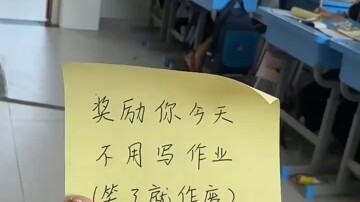 奖励你今天
不用写作业
(笑了就作废)